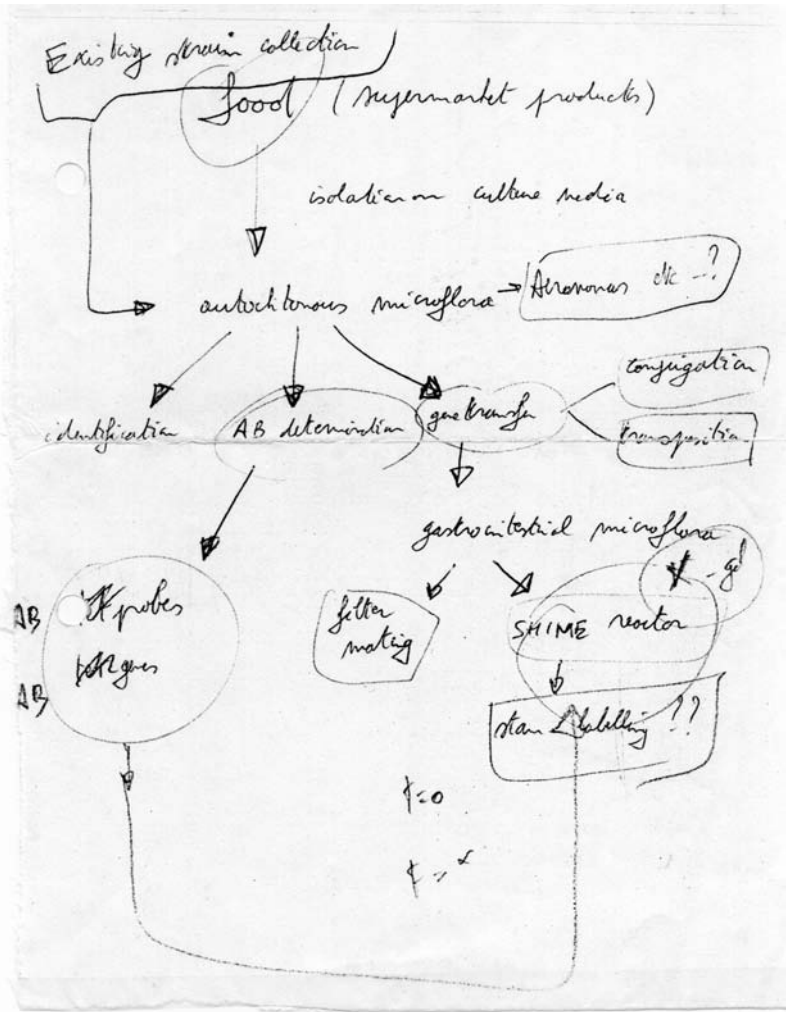 Existing strain collection
food (supermarket products)
isolation on culture media
autochtonous microflora → Aeromonas etc - ?
identification
AB determination
gene transfer
conjugation
transposition
gastrointestinal microflora
filter
mating
SHIME reactor
AB probes
AB genes
labelling ??
t=0